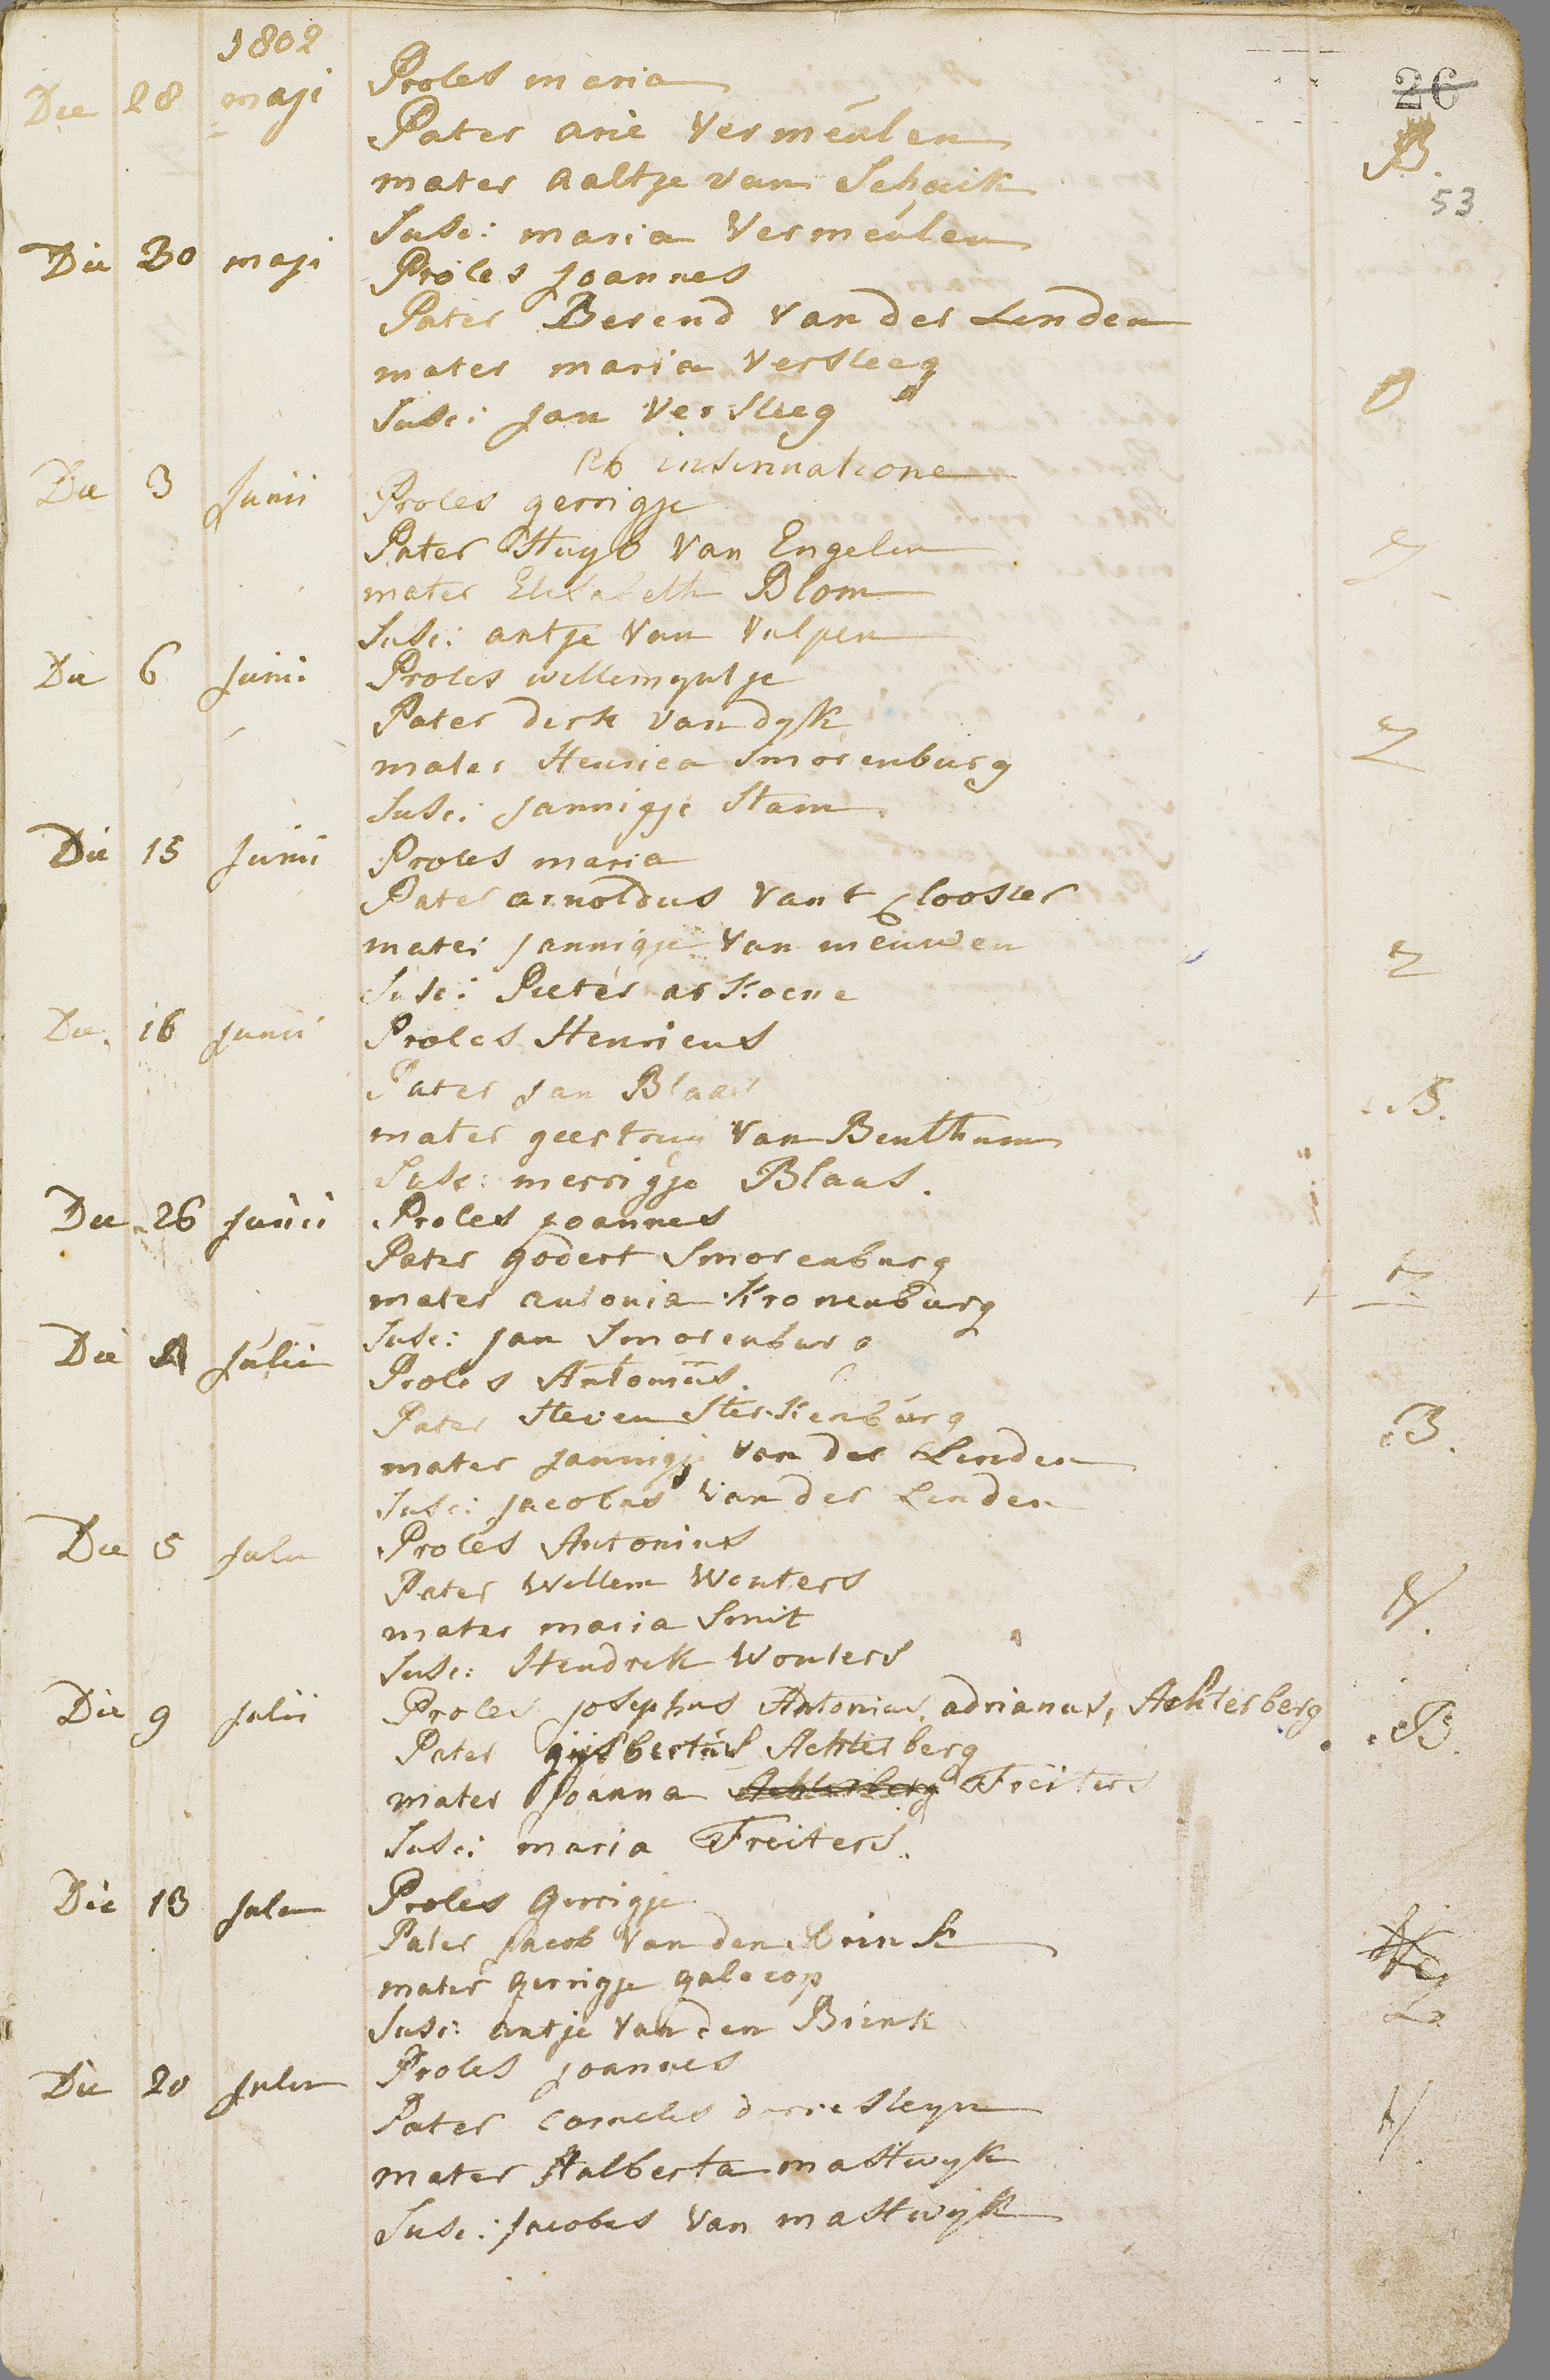 1802
26
B.
53
Die 28 maji Proles maria
Pater arie Vermeulen
mater aaltje van Schaik
Susc: maria Vermeulen
Die 30 maji Proles joannes
Pater Berend van der Linden
mater maria Versteeg
Susc: jan Versteeg
ab insinuatione
Die 3 Junii Proles gerrigje
Pater Huyb van Engelen
mater Elisabeth Blom
Susc: antje van Vulpen
Die 6 Junii Proles willemyntje
Pater dirk van dyk
mater Henrica Smorenburg
Susc: jannigje Stam
Z
Die 15 Junii Proles maria
Pater arnoldus Vant Clooster
mater jannigje van nieuwen
Susc: Pieter
Die 16 junii Proles Henricus
Pater jan Blaas
B.
mater geertruy van Benthum
Susc: merrigje Blaas.
Die 26 junii Proles joannes
Pater godert Smorenburg
mater antonia Kronenburg
Susc: jan Smorenburg
Die julii Proles Antonius.
Pater Steven Sterkenburg
B.
mater jannigje van der Linden
Susc: jacobus van der Linden
Die 5 julii Proles Antonius
Pater Willem Wouters
mater maria Smit
Susc: Hendrik Wouters
Die 9 julii Proles josephus Antonius, adrianus, Achterberg
B.
Pater gijsbertus Achterberg
mater Joanna Achterberg Freiters
Susc: maria Freiters.
Die 13 julii Proles Gerrigje
Pater jacob van den Brink
mater gerrigje galecop
Susc: antje van den Brink
Die 20 julii Proles joannes
Pater cornelis dorresteyn
mater Aalberta mastwyk
Susc: jacobus van mastwijk